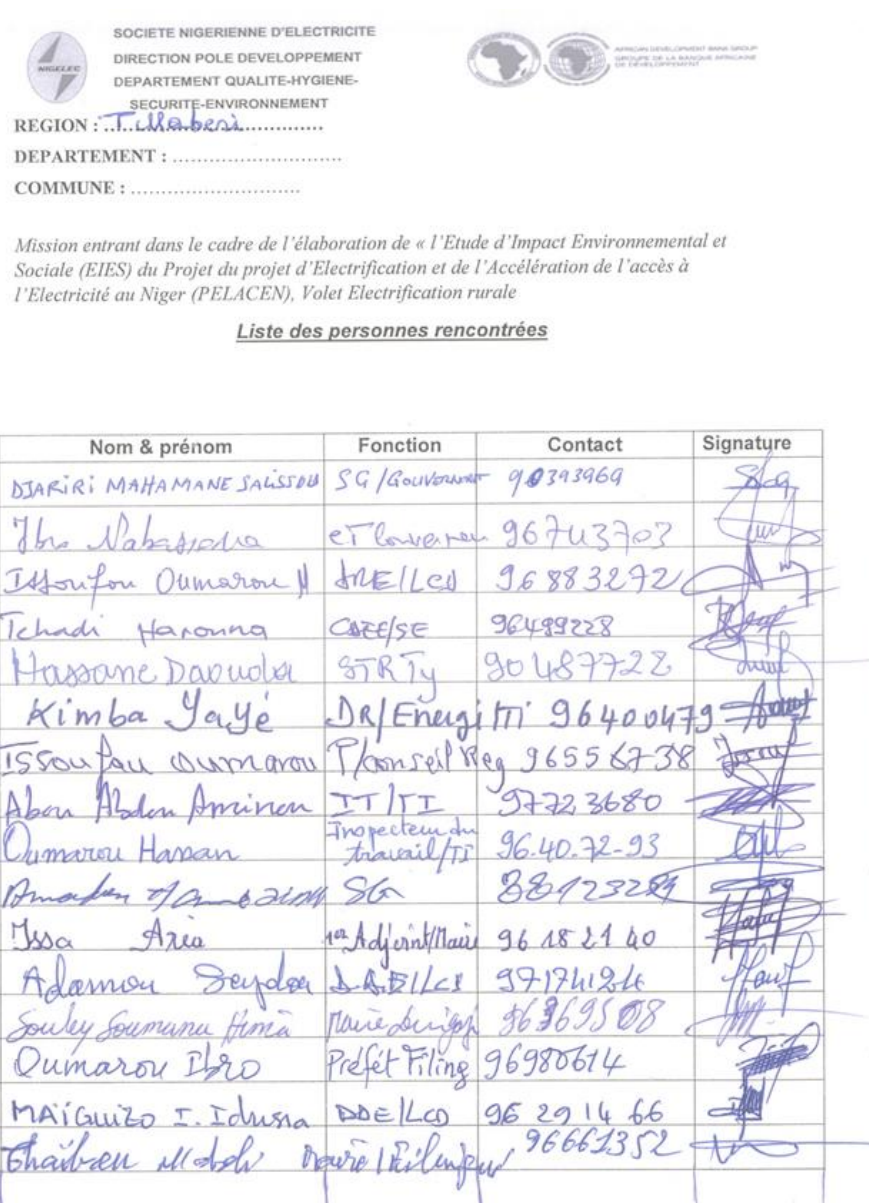 SOCIETE NIGERIENNE D'ELECTRICITE
DIRECTION POLE DEVELOPPEMENT
DEPARTEMENT QUALITE-HYGIENE-
SECURITE-ENVIRONNEMENT
NIGELEC
AFRICAN DEVELOPMENT BANK GROUP
GROUPE DE LA BANQUE AFRICAINE
DE DEVELOPPEMENT
REGION : Tillaberi
DEPARTEMENT : ..............................
COMMUNE : ..............................
Mission entrant dans le cadre de l'élaboration de « l'Etude d'Impact Environnemental et
Sociale (EIES) du Projet du projet d'Electrification et de l'Accélération de l'accès à
l'Electricité au Niger (PELACEN), Volet Electrification rurale
Liste des personnes rencontrées
Nom & prénom Fonction Contact Signature
DJARIRI MAHAMANE SALISSOU SG/Gouvernorat 90393969
Ibro 96743703
Issoufou Oumarou H 96883272
Tchadi Harouna 96499228
Hassane Daouda 90487728
Kimba Yayé DR/Energi/Ti 96400479
Issoufou Oumarou P/conseil Reg 96556738
Abou Abdou Aminou IT/TI 97723680
Oumarou Hassan Inspecteur du travail/TI 96.40.72-93
SG
Issa 1er Adjoint/Maire 96 18 21 40
Adamou Seydou 97174124
Souley Soumana Hima Maire 96369508
Oumarou Ibro Préfét Filing 96980614
MAÏGUIZO I. Idrissa DDE/LCD 96 29 14 66
96661352